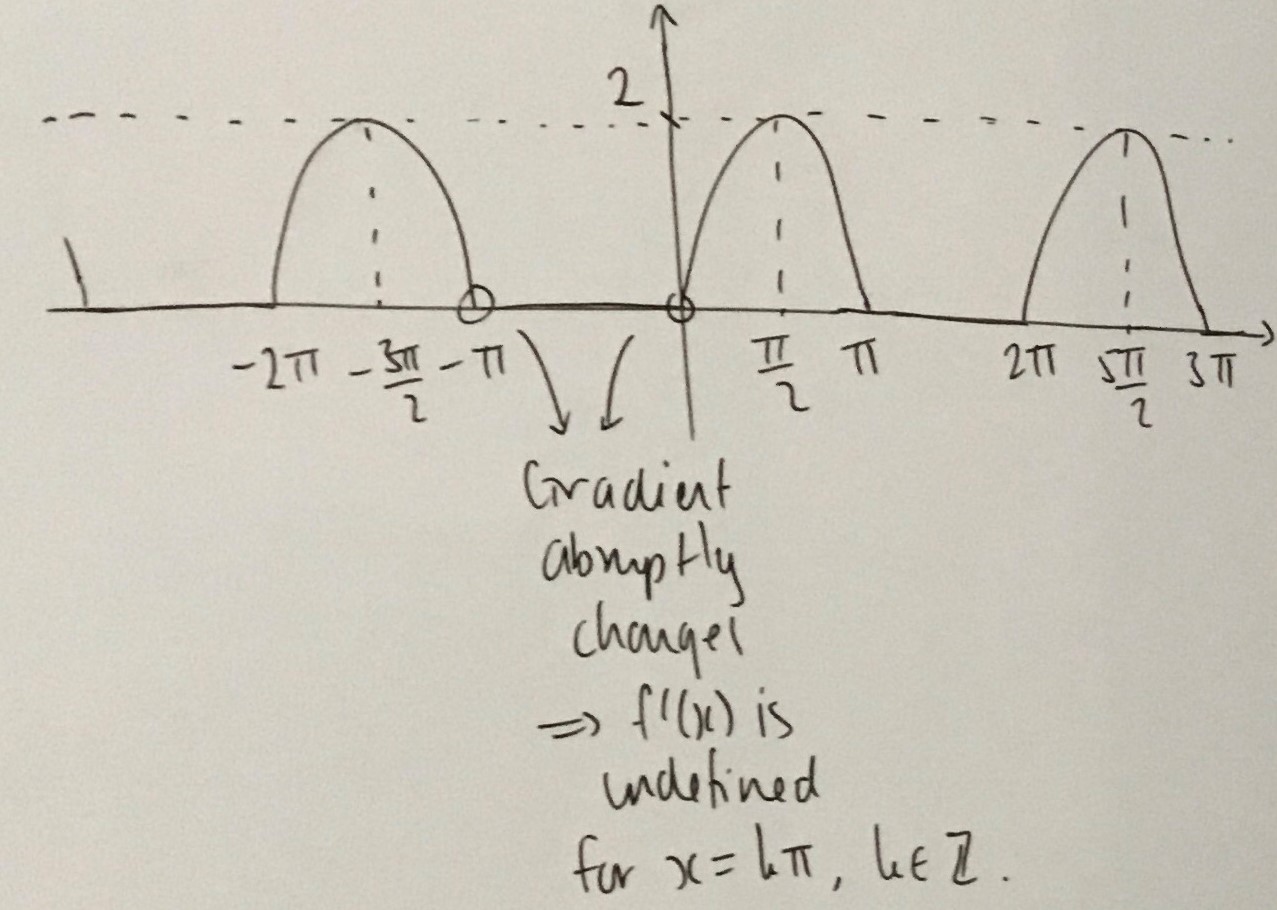 2
-2π -3π/2 -π π/2 π 2π 5π/2 3π
Gradient
abruptly
changes
⇒ f'(x) is
undefined
for x = kπ, k ∈ ℤ.